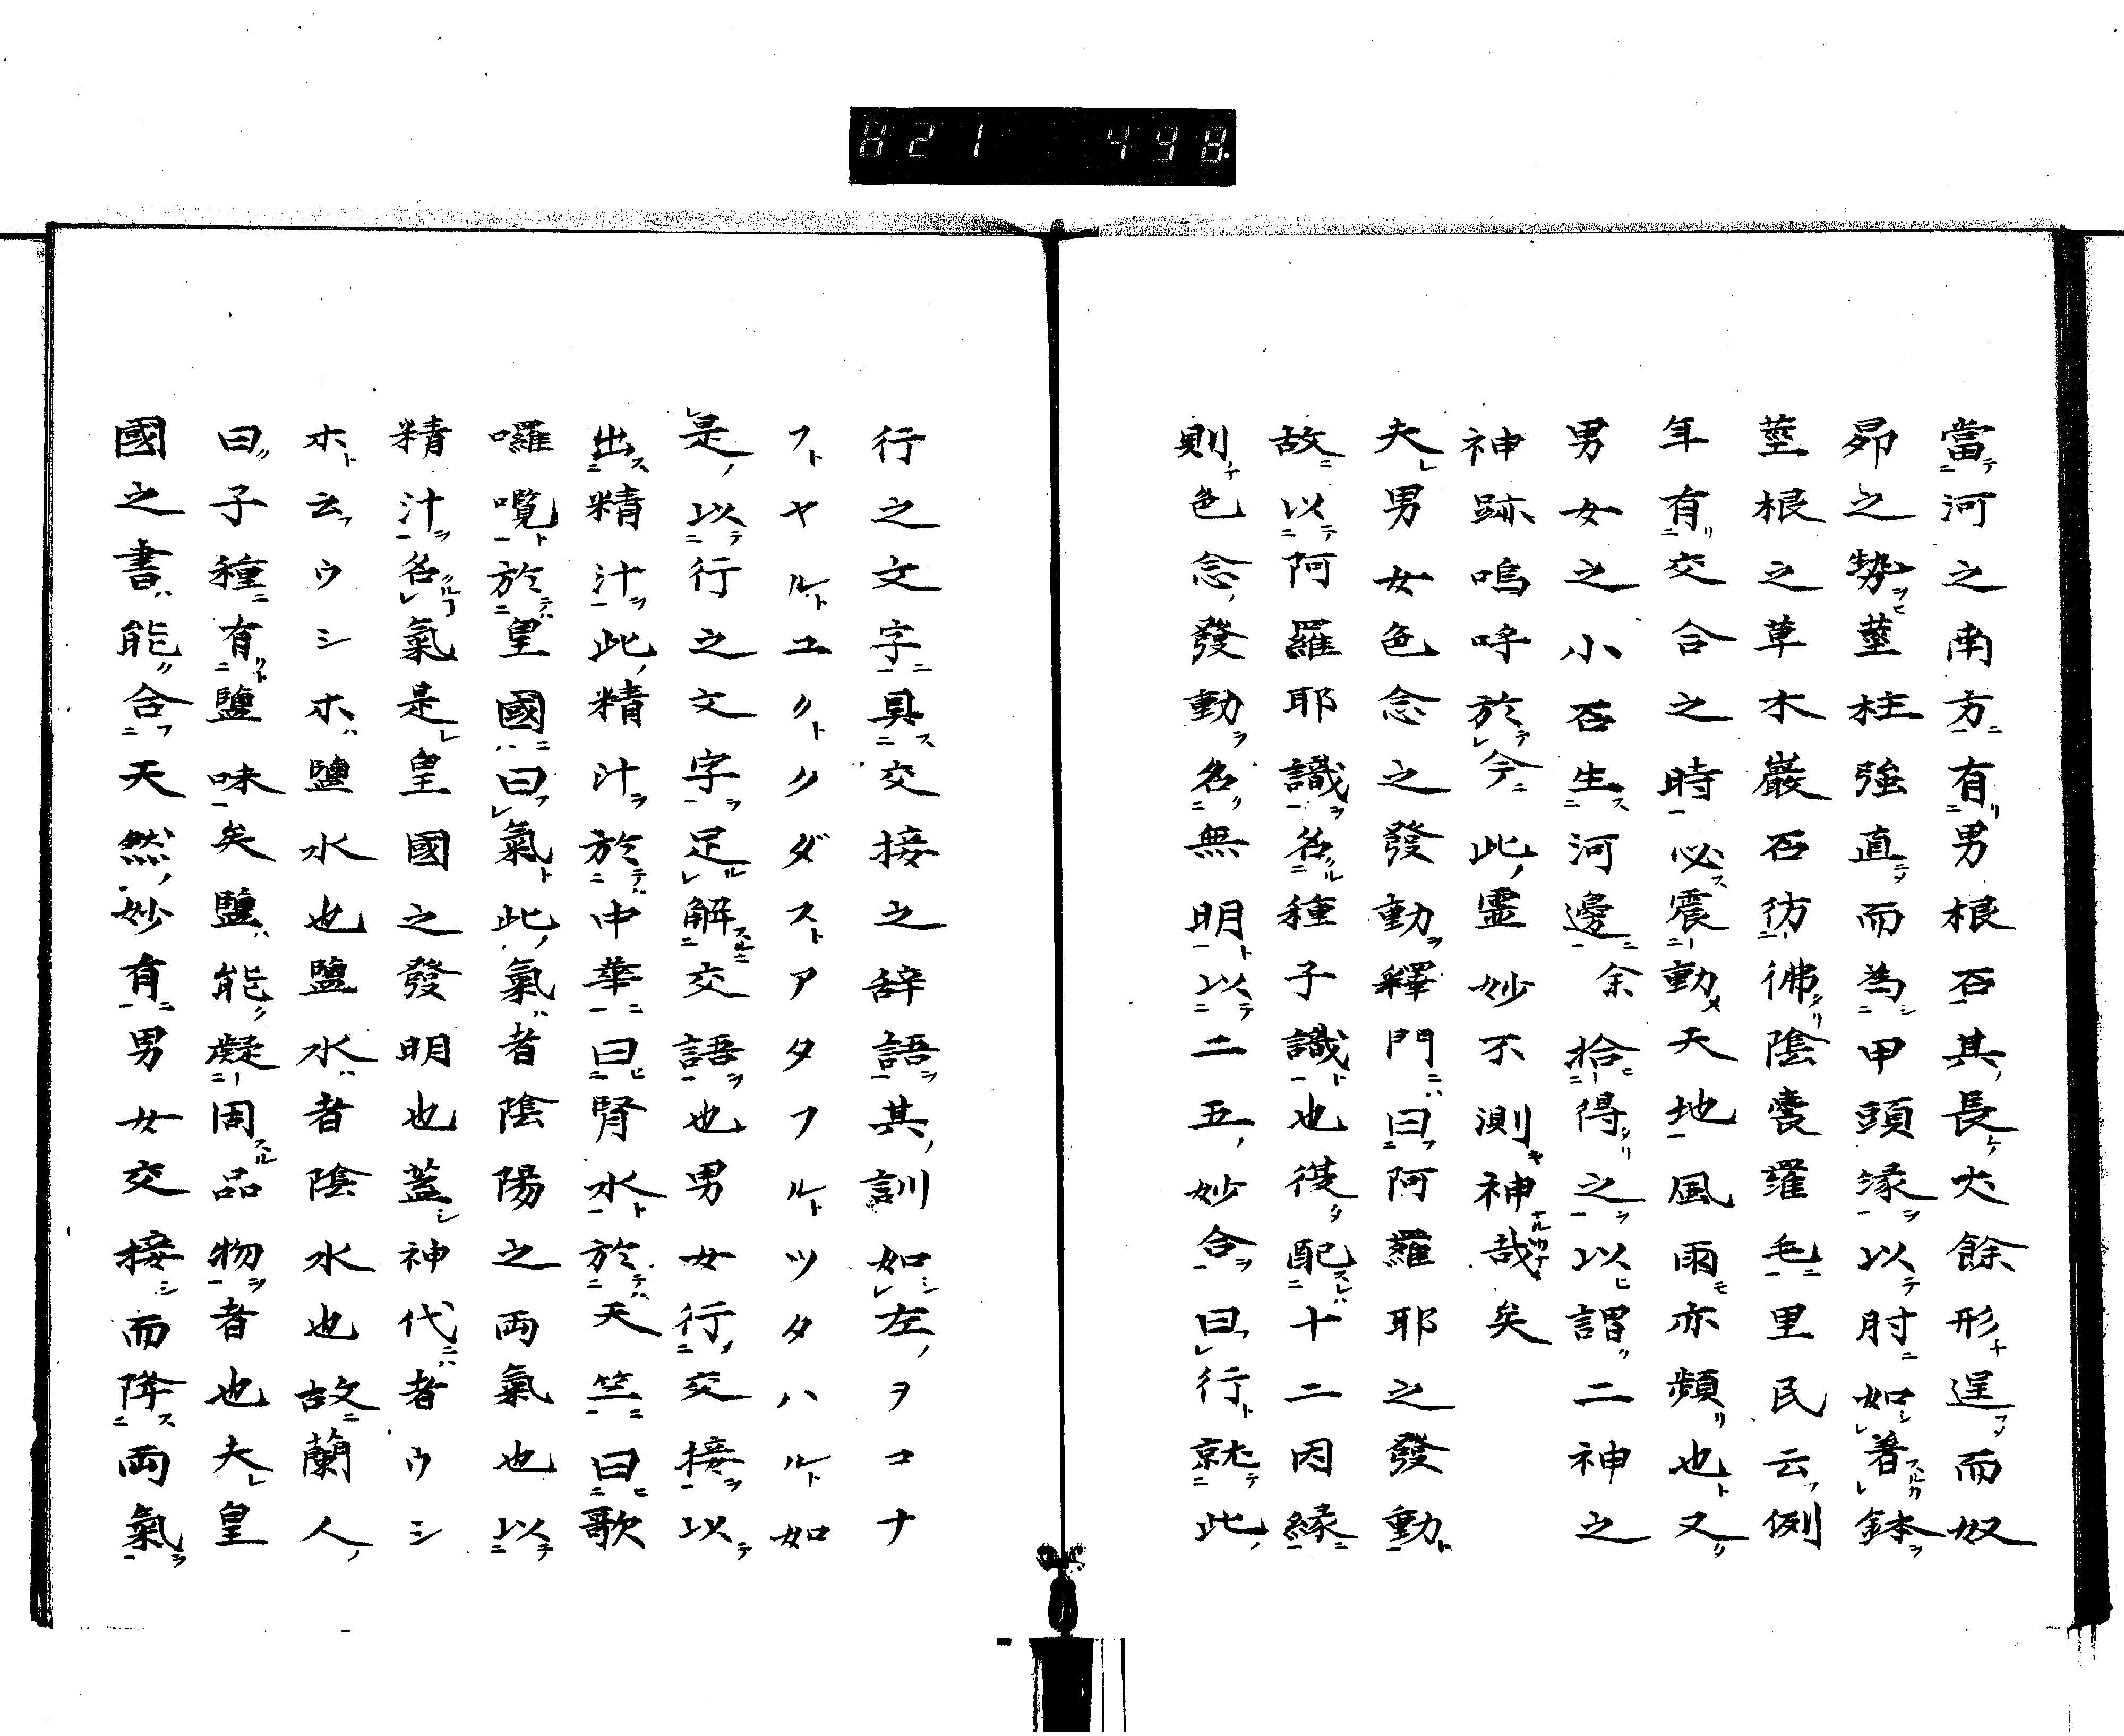 821 498
當河之南方有男根石其長大餘形逞而奴
昴之勢莖柱強直而為甲頭縁以肘如著鉢
莖根之草木巖石彷彿陰嚢羅毛里民云例
年有交合之時必震動天地風雨亦頻也又
男女之小石生河邊余拾得之以謂二神之
神跡嗚呼於今此霊妙不測神哉矣
夫男女色念之發動釋門曰阿羅耶之發動
故以阿羅耶識名種子識也從配十二因縁
則色念發動名無明以二五妙合曰行就此
行之文字具交接之辞語其訓如左ヲコナ
フトヤルトユクトクダストアタフルトツタハルト如
是以行之文字足解交語也男女行交接以
出精汁此精汁於中華曰腎水於天竺曰歌
囉嚂於皇國曰氣此氣者陰陽之両氣也以
精汁名氣是皇國之發明也蓋神代者ウシ
ホト云ウシホハ鹽水也鹽水者陰水也故蘭人
曰子種有鹽味矣鹽能凝固品物者也夫皇
國之書能合天然妙有男女交接而降両氣